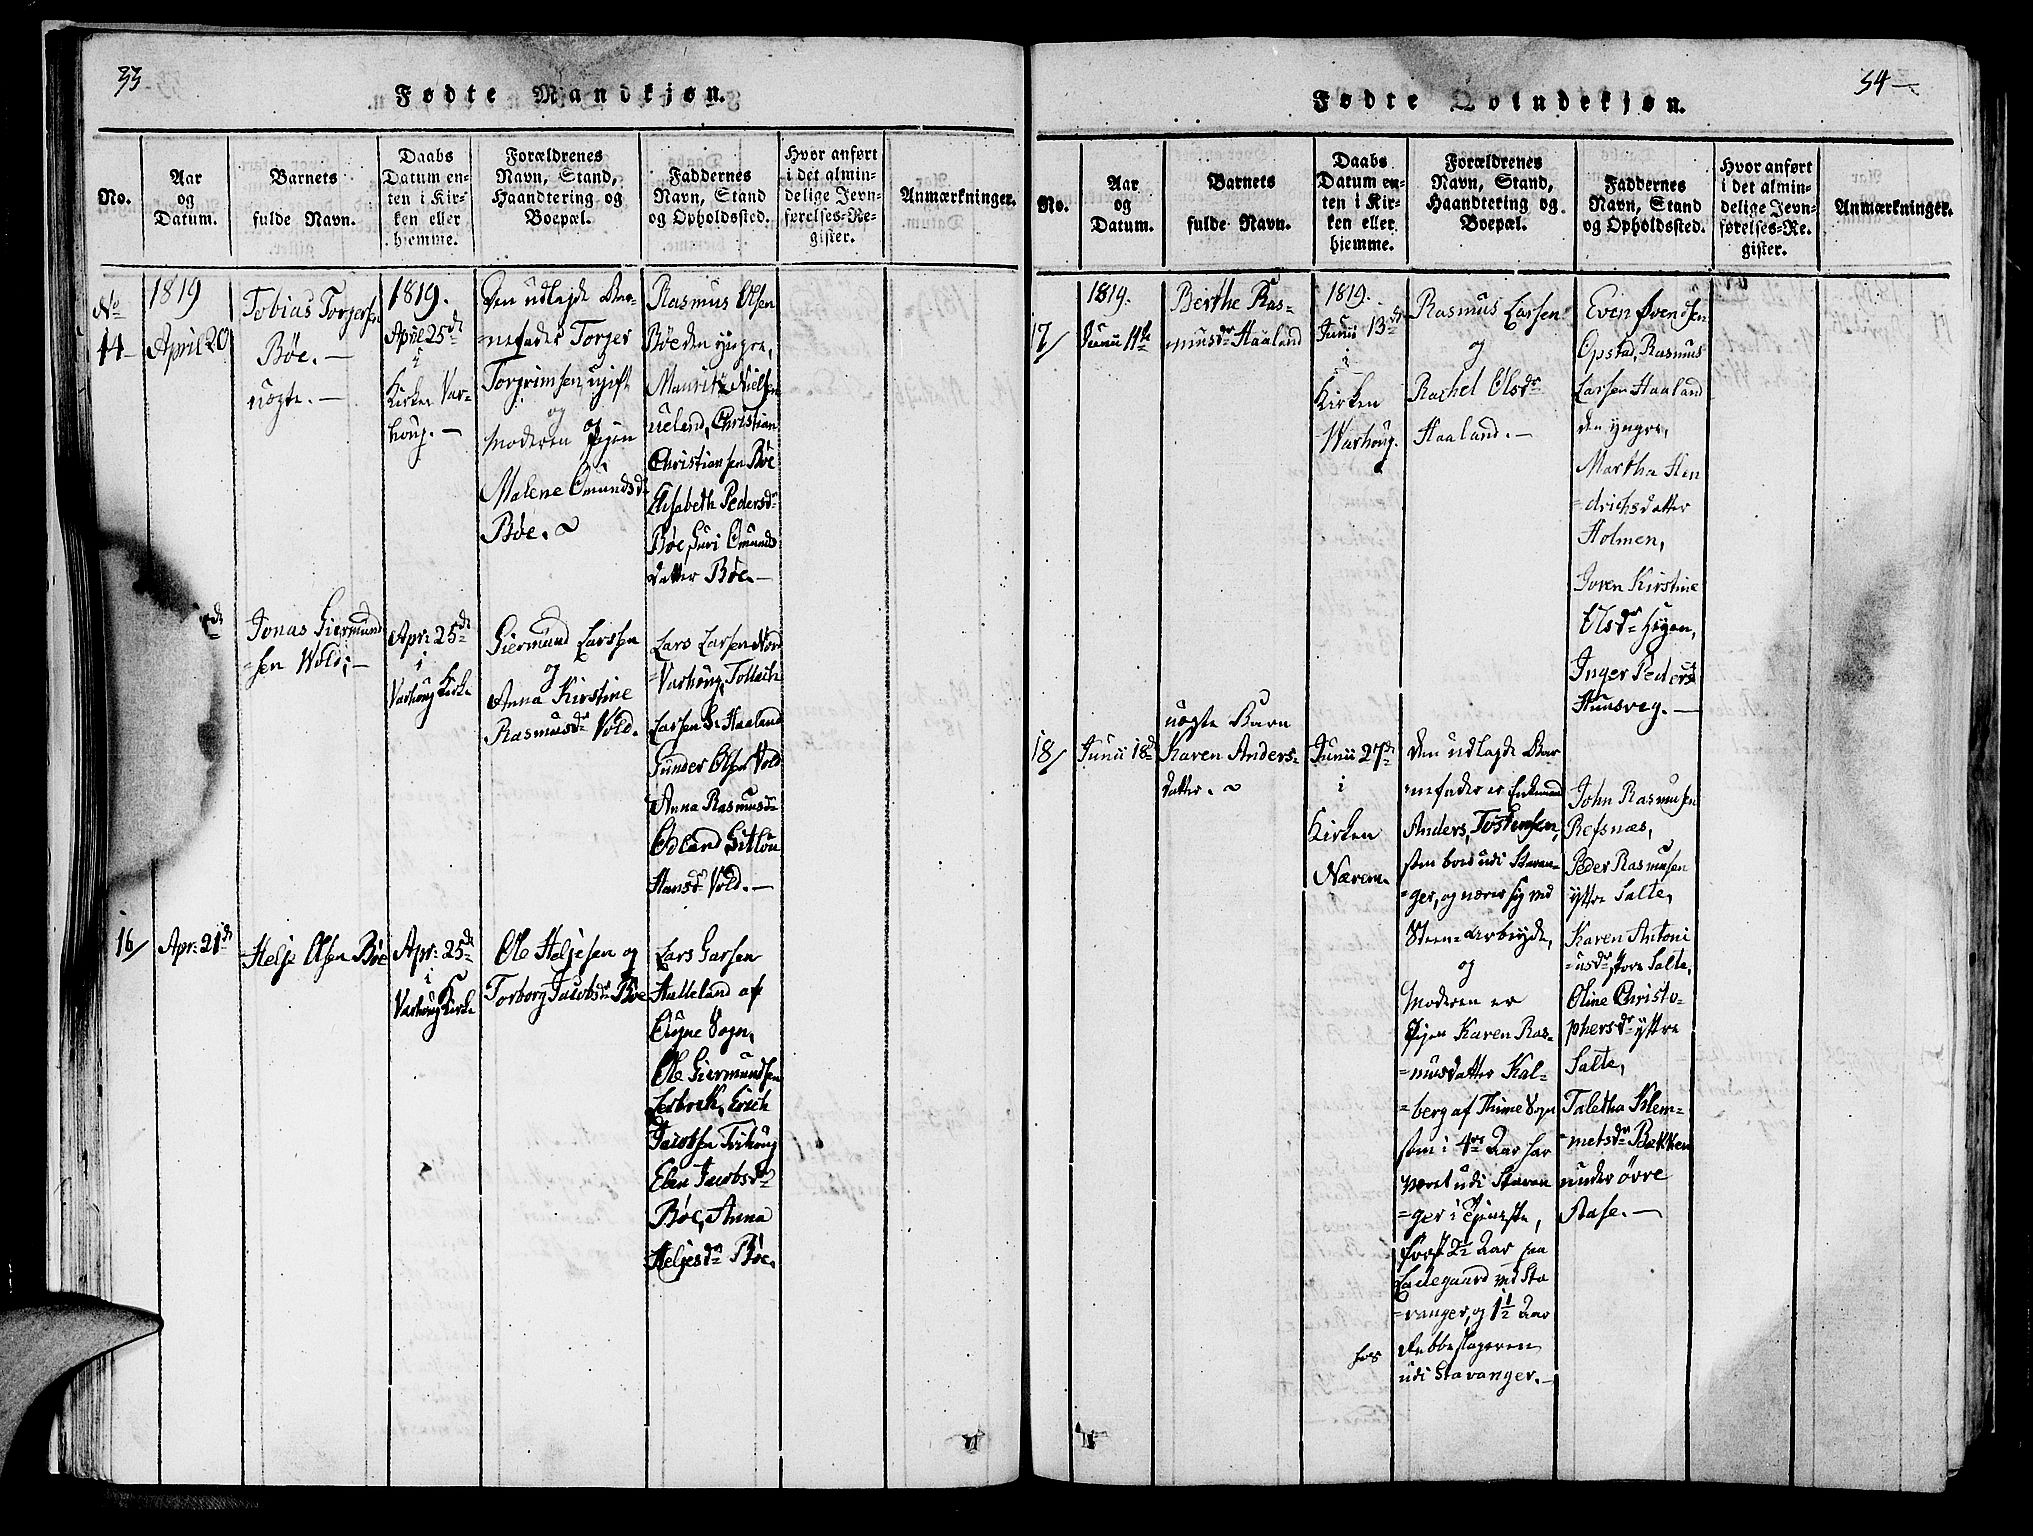 33
Fødte Mandkjøn.
No.
Aar
og
Datum.
Barnets
fulde Navn.
Daabs
Datum en-
ten i Kir-
ken eller
hiemme.
Forældrenes
Navn, Stand,
Haandtering og
Boepæl.
Faddernes
Navn, Stand
og Opholdssted.
Hvor anført
i det almin-
delige Jevn-
førelses-Re-
gister.
Anmærkninger.
No
14
1819
April 20
Tobias Torgersen
Bøe.
uægte.
1819.
April 25de
i
Kirken Var-
houg.
Den udlagde Bar-
nefader Torger
Torgrimsen, ugift
og
Moderen Pigen
Malene Omundsdr
Bøe.
Rasmus Olsen
Bøe den yngre,
Mauritz Nielsen
ueland, Christian
Christiansen Bøe
Elisabeth Pedersdr
Bøe, Guri Omunds
datter Bøe.
de
Jonas Giermund
=sen Wold;
Apr: 25de
i
Varhoug Kirke
Giermund Larssen
og
Anna Kirstine
Rasmusdr Vold.
Lars Larsen Nord
=Varhoug, Tollach
Larsen Sr Haaland
Gunder Olsen Vold
Anna Rasmusdr
Ødland
Hansdr Vold.
16/
Apr: 21de
Helje Olsen Bøe
Apr: 25de
i
Varhoug Kirke
Ole Heljesen og
Torborg Jacobsdr Bøe
Lars Garsen
Halleland af
Sogn,
Ole Giermundsen
Lerbrek, Erich
Jacobsen
Elen Jacobsdr
Bøe, Anna
Heljesdr Bøe.
34
Fødte Qvindekjøn.
No.
Aar
og
Datum.
Barnets
fulde Navn.
Daabs
Datum en-
ten i Kir-
ken eller
hiemme.
Forældrenes
Navn, Stand,
Haandtering og
Boepæl.
Faddernes
Navn, Stand
og Opholdssted.
Hvor anført
i det almin-
delige Jevn-
førelses-Re-
gister.
Anmærkninger.
17/
1819.
Junii 11te
Berthe Ras-
musdr Haaland
1819.
Junii 13de
i
Kirken
Varhoug.
Rasmus Larsen
og
Rachel Olsdr
Haaland.
Even Evendsen
Opstad, Rasmus
Larsen Haaland
den yngre,
Martha Hen
=drichsdatter
Holmen,
Joren Kirstine
Olsdr Høgen,
Inger Pedersdr
Hunsveg.
18/
Junii 18de
uægte Barn
Karen Anders-
datter.
Junii 27de
i
Kirken
Nærem.
Den udlagde Bar
=nefader er Enkemand
Anders, Tostensen,
som boed udi Stavan-
=ger, og nærer sig med
Steen=Arbeyde,
og
Moderen er
Pigen Karen Ras-
=musdatter Kal-
=berg af Thime Sogn
som i 4re Aar har
været udi Stavan
=ger i Tjeneste,
først 2½ Aar paa
Ladegaard ved Sta
=vanger, og 1½ Aar
hos
Rebbeslageren
udi Stavanger.
John Rasmusen
Refsnæs,
Peder Rasmusen
yttre Salte,
Karen Antoni
=usdr, store Salte,
Oline Christo-
phersdr yttre
Salte,
Taletha Klem-
=metsdr Bækken
under øvre
Rase.